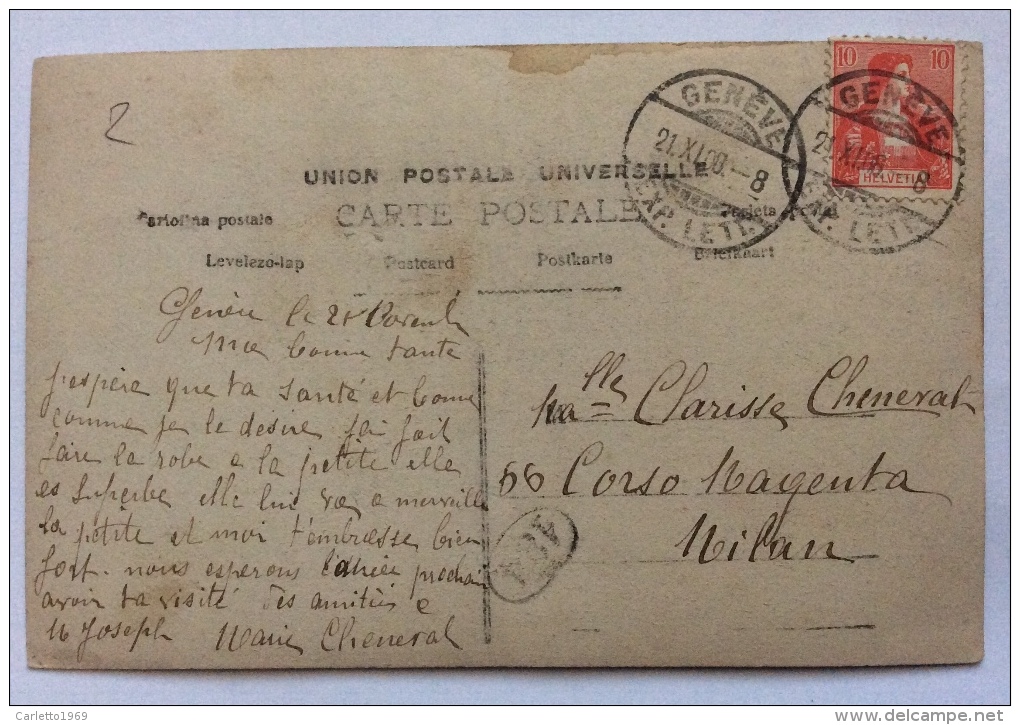 2
10 10
HELVETIA
GENÈVE
21.XI.08.-8
EXP. LETT.
GENÈVE
21.XI.08.-8
EXP. LETT.
UNION POSTALE UNIVERSELLE
CARTE POSTALE
Cartolina postale
Levelezo-lap Postcard Postkarte Briefkaart
Genève le 21 Novemb
Ma bonne tante
j'espère que ta santé et bonne
comme je le désire j'ai fait
faire la robe a la petite elle
es superbe elle lui va a merveille
la petite et moi t'embrasse bien
fort. nous esperons l'année prochain
avoir ta visité des amitiés a
M Joseph Marie Cheneval
Melle Clarisse Cheneval
66 Corso Magenta
Milan
Carletto1969
delcampe.net